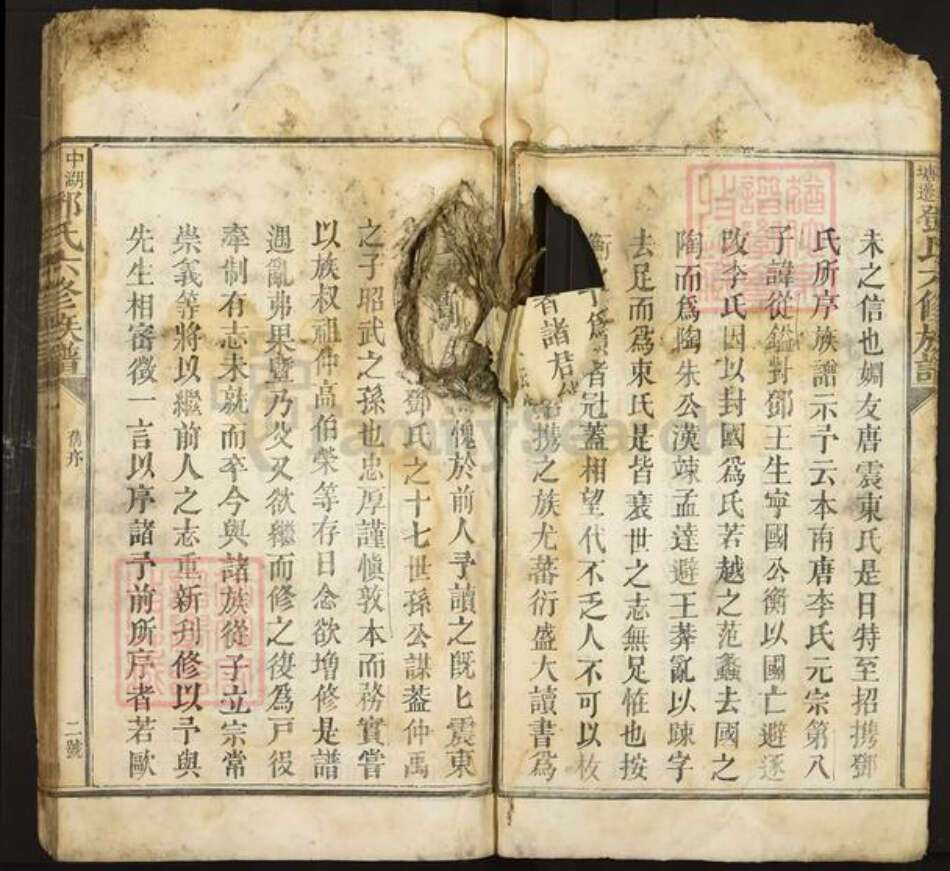 鄧氏六修族譜
未之信也姻友唐震東氏是日特至招携鄧
氏所序族譜示予云本南唐李氏元宗第八
子諱從鎰對鄧王生寧國公衡以國亡避逐
改李氏因以封國爲氏若越之范蠡去國之
陶而爲陶朱公漢竦孟達避王莽亂以踈字
去足而爲束氏是皆衰世之志無足惟也按
者冠蓋相望代不乏人不可以枚
者諸君
携之族尤蕃衍盛大讀書爲
愧於前人予讀之旣匕震東
鄧氏之十七世孫公謀葢仲禹
之子昭武之孫也忠厚謹愼敦本而務實嘗
以族叔祖仲高伯榮等存日念欲增修是譜
遇亂弗果曁乃父又欲繼而修之復爲戸役
牽制有志未就而卒今與諸族從子立宗常
崇義等將以繼前人之志重新刋修以予與
先生相密徵一言以序諸予前所序者若歐
中湖鄧氏六修族譜
舊序
二號